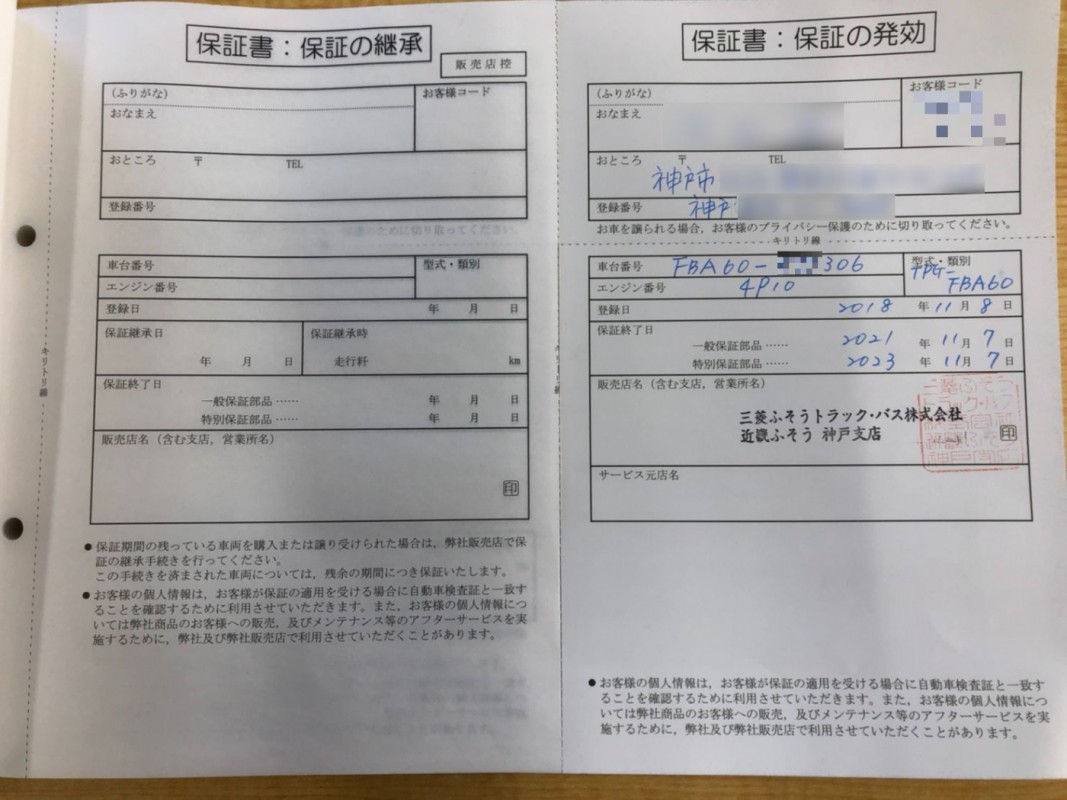 保証書：保証の継承
販売店控
(ふりがな)
お客様コード
おなまえ
おところ 〒 TEL
登録番号
車台番号
型式・類別
エンジン番号
登録日 年 月 日
保証継承日
年 月 日
保証継承時
走行粁 km
保証終了日
一般保証部品…… 年 月 日
特別保証部品…… 年 月 日
販売店名（含む支店，営業所名）
印
●保証期間の残っている車両を購入または譲り受けられた場合は，弊社販売店で保
証の継承手続きを行ってください。
この手続きを済まされた車両については，残余の期間につき保証いたします。
●お客様の個人情報は，お客様が保証の適用を受ける場合に自動車検査証と一致す
ることを確認するために利用させていただきます。また，お客様の個人情報につい
ては弊社商品のお客様への販売，及びメンテナンス等のアフターサービスを実
施するために，弊社及び弊社販売店で利用させていただくことがあります。
キリトリ線
保証書：保証の発効
(ふりがな)
お客様コード
おなまえ
おところ 〒 TEL
神戸市
登録番号 神戸
お車を譲られる場合，お客様のプライバシー保護のために切り取ってください。
キリトリ線
車台番号 FBA60- 306
型式・類別
TPG-
FBA60
エンジン番号 4P10
登録日 2018 年 11 月 8 日
保証終了日
一般保証部品…… 2021 年 11 月 7 日
特別保証部品…… 2023 年 11 月 7 日
販売店名（含む支店，営業所名）
三菱ふそうトラック・バス株式会社
近畿ふそう 神戸支店
印
サービス元店名
●お客様の個人情報は，お客様が保証の適用を受ける場合に自動車検査証と一致す
ることを確認するために利用させていただきます。また，お客様の個人情報につ
いては弊社商品のお客様への販売，及びメンテナンス等のアフターサービスを実
施するために，弊社及び弊社販売店で利用させていただくことがあります。